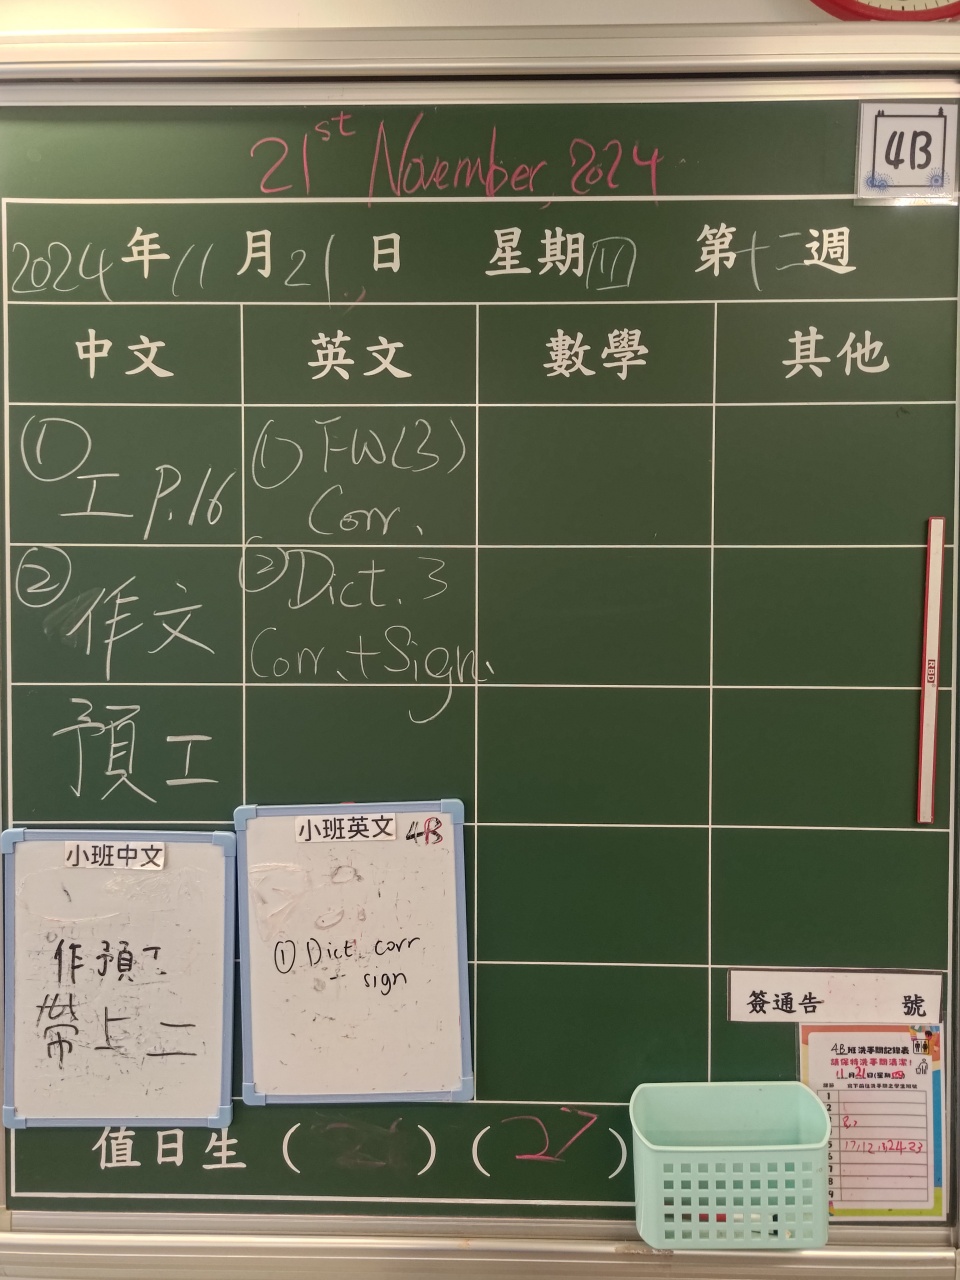 21st November, 2024
4B
2024年11月21日 星期四 第十二週
中文 英文 數學 其他
① 工 P.16
① FW(3)
Corr.
② 作文
② Dict. 3
Corr. + Sign.
預工
小班中文
作預工
帶上二
小班英文 4B
① Dict. corr
+ sign
RBD
簽通告 號
4B班洗手間記錄表
請保持洗手間清潔!
11月21日(星期四)
1
2
3
5 17,12,11,24,23
6
7
8
9
值日生( )(27)